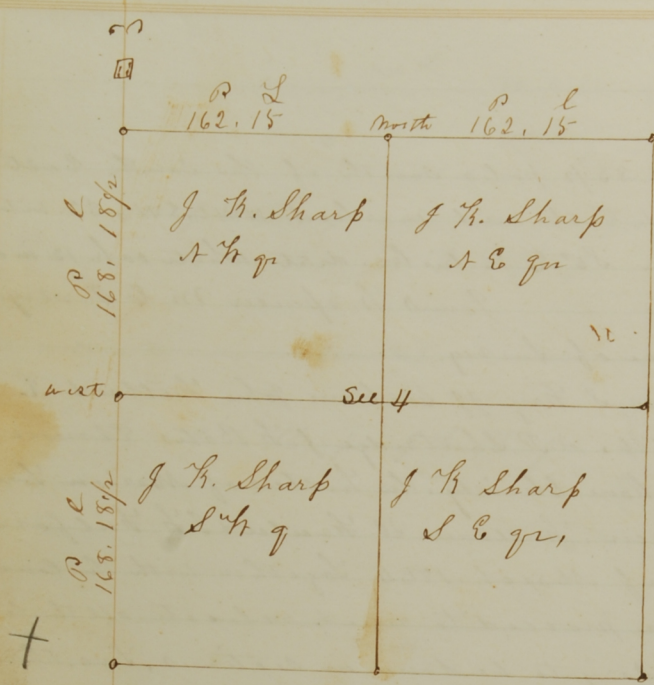 P L P l
162. 15 North 162. 15
P l
168. 18 1/2
J K. Sharp
N W qr
J K. Sharp
N E qr
west
Sec 4
P l
168. 18 1/2
J K. Sharp
S W q
J K Sharp
S E qr,